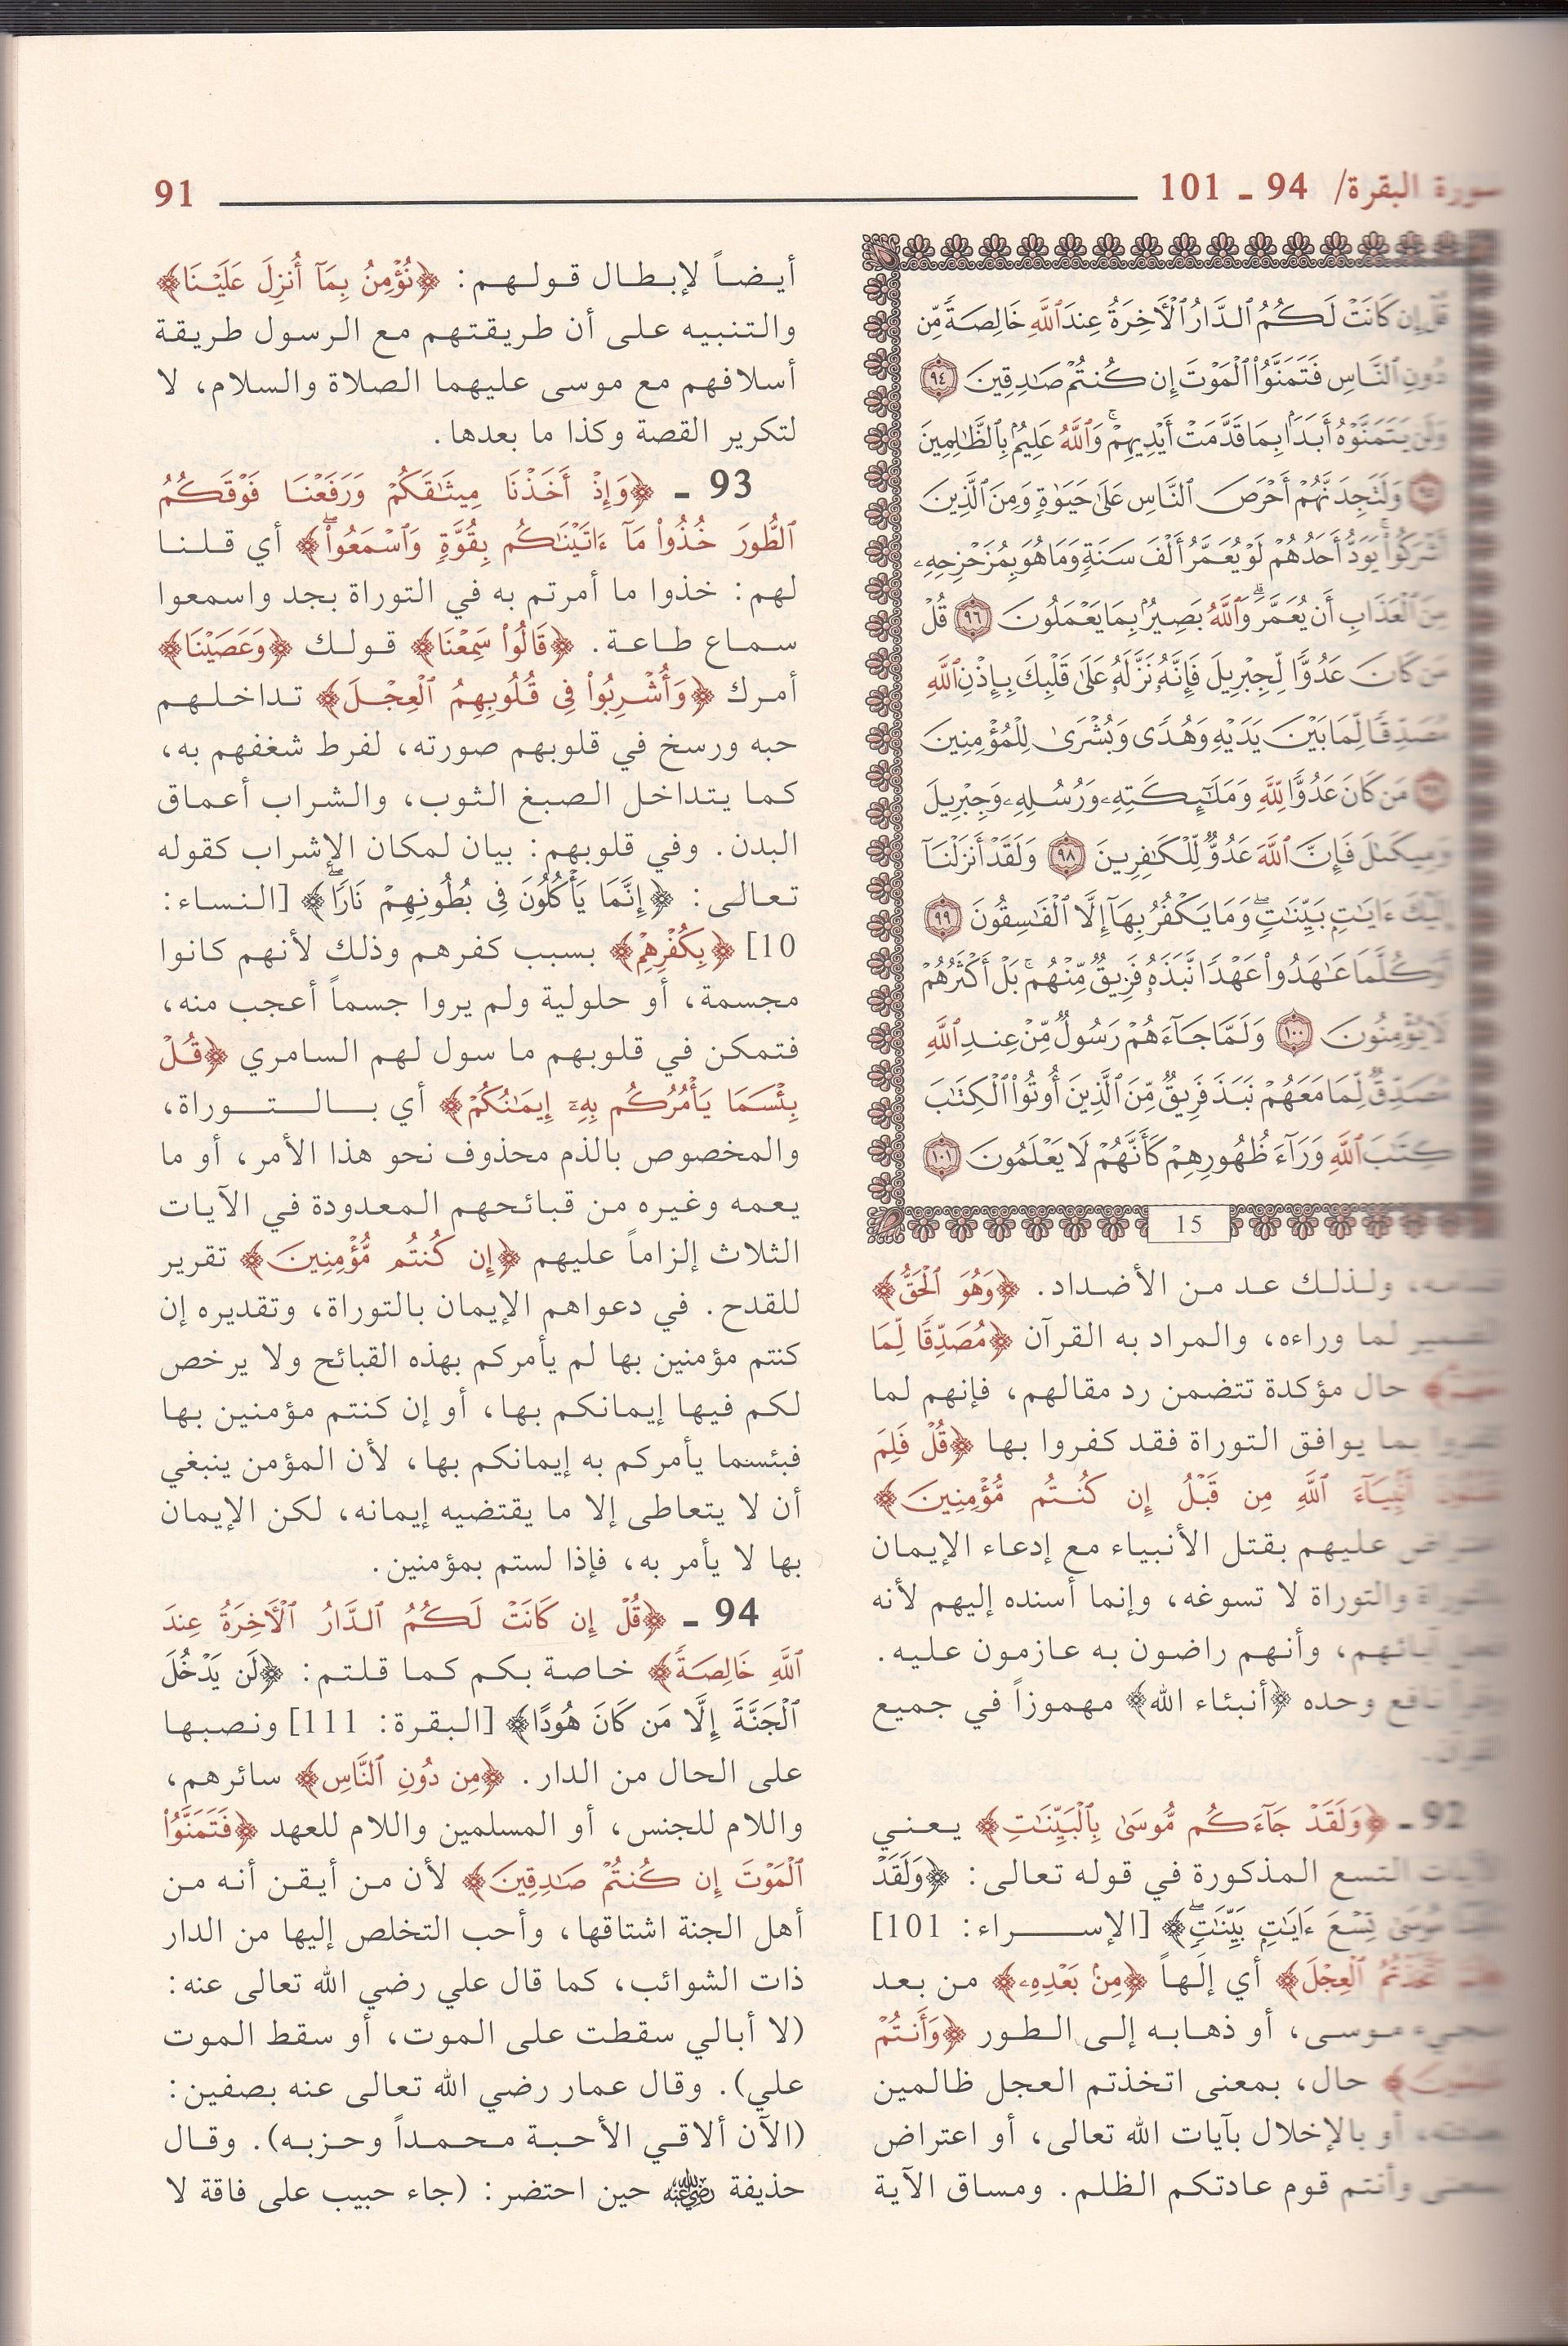 سورة البقرة/ 94 ـ 101
91
قُلْ إِن كَانَتْ لَكُمُ ٱلدَّارُ ٱلْأَخِرَةُ عِندَ ٱللَّهِ خَالِصَةً مِّن
دُونِ ٱلنَّاسِ فَتَمَنَّوُا۟ ٱلْمَوْتَ إِن كُنتُمْ صَـٰدِقِينَ ٩٤
وَلَن يَتَمَنَّوْهُ أَبَدًۢا بِمَا قَدَّمَتْ أَيْدِيهِمْ ۗ وَٱللَّهُ عَلِيمٌۢ بِٱلظَّـٰلِمِينَ
٩٥ وَلَتَجِدَنَّهُمْ أَحْرَصَ ٱلنَّاسِ عَلَىٰ حَيَوٰةٍ وَمِنَ ٱلَّذِينَ
أَشْرَكُوا۟ ۚ يَوَدُّ أَحَدُهُمْ لَوْ يُعَمَّرُ أَلْفَ سَنَةٍ وَمَا هُوَ بِمُزَحْزِحِهِۦ
مِنَ ٱلْعَذَابِ أَن يُعَمَّرَ ۗ وَٱللَّهُ بَصِيرٌۢ بِمَا يَعْمَلُونَ ٩٦ قُلْ
مَن كَانَ عَدُوًّا لِّجِبْرِيلَ فَإِنَّهُۥ نَزَّلَهُۥ عَلَىٰ قَلْبِكَ بِإِذْنِ ٱللَّهِ
مُصَدِّقًا لِّمَا بَيْنَ يَدَيْهِ وَهُدًى وَبُشْرَىٰ لِلْمُؤْمِنِينَ
٩٧ مَن كَانَ عَدُوًّا لِّلَّهِ وَمَلَـٰٓئِكَتِهِۦ وَرُسُلِهِۦ وَجِبْرِيلَ
وَمِيكَىٰلَ فَإِنَّ ٱللَّهَ عَدُوٌّ لِّلْكَـٰفِرِينَ ٩٨ وَلَقَدْ أَنزَلْنَآ
إِلَيْكَ ءَايَـٰتٍۭ بَيِّنَـٰتٍ ۖ وَمَا يَكْفُرُ بِهَآ إِلَّا ٱلْفَـٰسِقُونَ ٩٩
أَوَكُلَّمَا عَـٰهَدُوا۟ عَهْدًا نَّبَذَهُۥ فَرِيقٌ مِّنْهُم ۚ بَلْ أَكْثَرُهُمْ
لَا يُؤْمِنُونَ ١٠٠ وَلَمَّا جَآءَهُمْ رَسُولٌ مِّنْ عِندِ ٱللَّهِ
مُصَدِّقٌ لِّمَا مَعَهُمْ نَبَذَ فَرِيقٌ مِّنَ ٱلَّذِينَ أُوتُوا۟ ٱلْكِتَـٰبَ
كِتَـٰبَ ٱللَّهِ وَرَآءَ ظُهُورِهِمْ كَأَنَّهُمْ لَا يَعْلَمُونَ ١٠١
15
ولذلك عد من الأضداد. ﴿وَهُوَ ٱلْحَقُّ﴾
الضمير لما وراءه، والمراد به القرآن ﴿مُصَدِّقًا لِّمَا
حال مؤكدة تتضمن رد مقالهم، فإنهم لما
كفروا بما يوافق التوراة فقد كفروا بها ﴿قُلْ فَلِمَ
تَقْتُلُونَ أَنۢبِيَآءَ ٱللَّهِ مِن قَبْلُ إِن كُنتُم مُّؤْمِنِينَ﴾
اعتراض عليهم بقتل الأنبياء مع إدعاء الإيمان
بالتوراة والتوراة لا تسوغه، وإنما أسنده إليهم لأنه
فعل آبائهم، وأنهم راضون به عازمون عليه.
وقرأ نافع وحده ﴿أنبئاء الله﴾ مهموزاً في جميع
القرآن.
92 ـ ﴿وَلَقَدْ جَآءَكُم مُّوسَىٰ بِٱلْبَيِّنَـٰتِ﴾ يعني
الآيات التسع المذكورة في قوله تعالى: ﴿وَلَقَدْ
ءَاتَيْنَا مُوسَىٰ تِسْعَ ءَايَـٰتٍۭ بَيِّنَـٰتٍ ۖ﴾ [الإسراء: 101]
ثُمَّ ٱتَّخَذْتُمُ ٱلْعِجْلَ﴾ أي إلَهاً ﴿مِنۢ بَعْدِهِۦ﴾ من بعد
مجيء موسى، أو ذهابه إلى الطور ﴿وَأَنتُمْ
ظَـٰلِمُونَ﴾ حال، بمعنى اتخذتم العجل ظالمين
أو بالإخلال بآيات الله تعالى، أو اعتراض
بمعنى وأنتم قوم عادتكم الظلم. ومساق الآية
أيضاً لإبطال قولهم: ﴿نُؤْمِنُ بِمَآ أُنزِلَ عَلَيْنَا﴾
والتنبيه على أن طريقتهم مع الرسول طريقة
أسلافهم مع موسى عليهما الصلاة والسلام، لا
لتكرير القصة وكذا ما بعدها.
93 ـ ﴿وَإِذْ أَخَذْنَا مِيثَـٰقَكُمْ وَرَفَعْنَا فَوْقَكُمُ
ٱلطُّورَ خُذُوا۟ مَآ ءَاتَيْنَـٰكُم بِقُوَّةٍ وَٱسْمَعُوا۟ ۖ﴾ أي قلنا
لهم: خذوا ما أمرتم به في التوراة بجد واسمعوا
سماع طاعة. ﴿قَالُوا۟ سَمِعْنَا﴾ قولك ﴿وَعَصَيْنَا﴾
أمرك ﴿وَأُشْرِبُوا۟ فِى قُلُوبِهِمُ ٱلْعِجْلَ﴾ تداخلهم
حبه ورسخ في قلوبهم صورته، لفرط شغفهم به،
كما يتداخل الصبغ الثوب، والشراب أعماق
البدن. وفي قلوبهم: بيان لمكان الإشراب كقوله
تعالى: ﴿إِنَّمَا يَأْكُلُونَ فِى بُطُونِهِمْ نَارًا ۖ﴾ [النساء:
10] ﴿بِكُفْرِهِمْ﴾ بسبب كفرهم وذلك لأنهم كانوا
مجسمة، أو حلولية ولم يروا جسماً أعجب منه،
فتمكن في قلوبهم ما سول لهم السامري ﴿قُلْ
بِئْسَمَا يَأْمُرُكُم بِهِۦٓ إِيمَـٰنُكُمْ﴾ أي بالتوراة،
والمخصوص بالذم محذوف نحو هذا الأمر، أو ما
يعمه وغيره من قبائحهم المعدودة في الآيات
الثلاث إلزاماً عليهم ﴿إِن كُنتُم مُّؤْمِنِينَ﴾ تقرير
للقدح. في دعواهم الإيمان بالتوراة، وتقديره إن
كنتم مؤمنين بها لم يأمركم بهذه القبائح ولا يرخص
لكم فيها إيمانكم بها، أو إن كنتم مؤمنين بها
فبئسما يأمركم به إيمانكم بها، لأن المؤمن ينبغي
أن لا يتعاطى إلا ما يقتضيه إيمانه، لكن الإيمان
بها لا يأمر به، فإذا لستم بمؤمنين.
94 ـ ﴿قُلْ إِن كَانَتْ لَكُمُ ٱلدَّارُ ٱلْأَخِرَةُ عِندَ
ٱللَّهِ خَالِصَةً﴾ خاصة بكم كما قلتم: ﴿لَن يَدْخُلَ
ٱلْجَنَّةَ إِلَّا مَن كَانَ هُودًا﴾ [البقرة: 111] ونصبها
على الحال من الدار. ﴿مِن دُونِ ٱلنَّاسِ﴾ سائرهم،
واللام للجنس، أو المسلمين واللام للعهد ﴿فَتَمَنَّوُا۟
ٱلْمَوْتَ إِن كُنتُمْ صَـٰدِقِينَ﴾ لأن من أيقن أنه من
أهل الجنة اشتاقها، وأحب التخلص إليها من الدار
ذات الشوائب، كما قال علي رضي الله تعالى عنه:
(لا أبالي سقطت على الموت، أو سقط الموت
علي). وقال عمار رضي الله تعالى عنه بصفين:
(الآن ألاقي الأحبة محمداً وحزبه). وقال
حذيفة رضي الله عنه حين احتضر: (جاء حبيب على فاقة لا